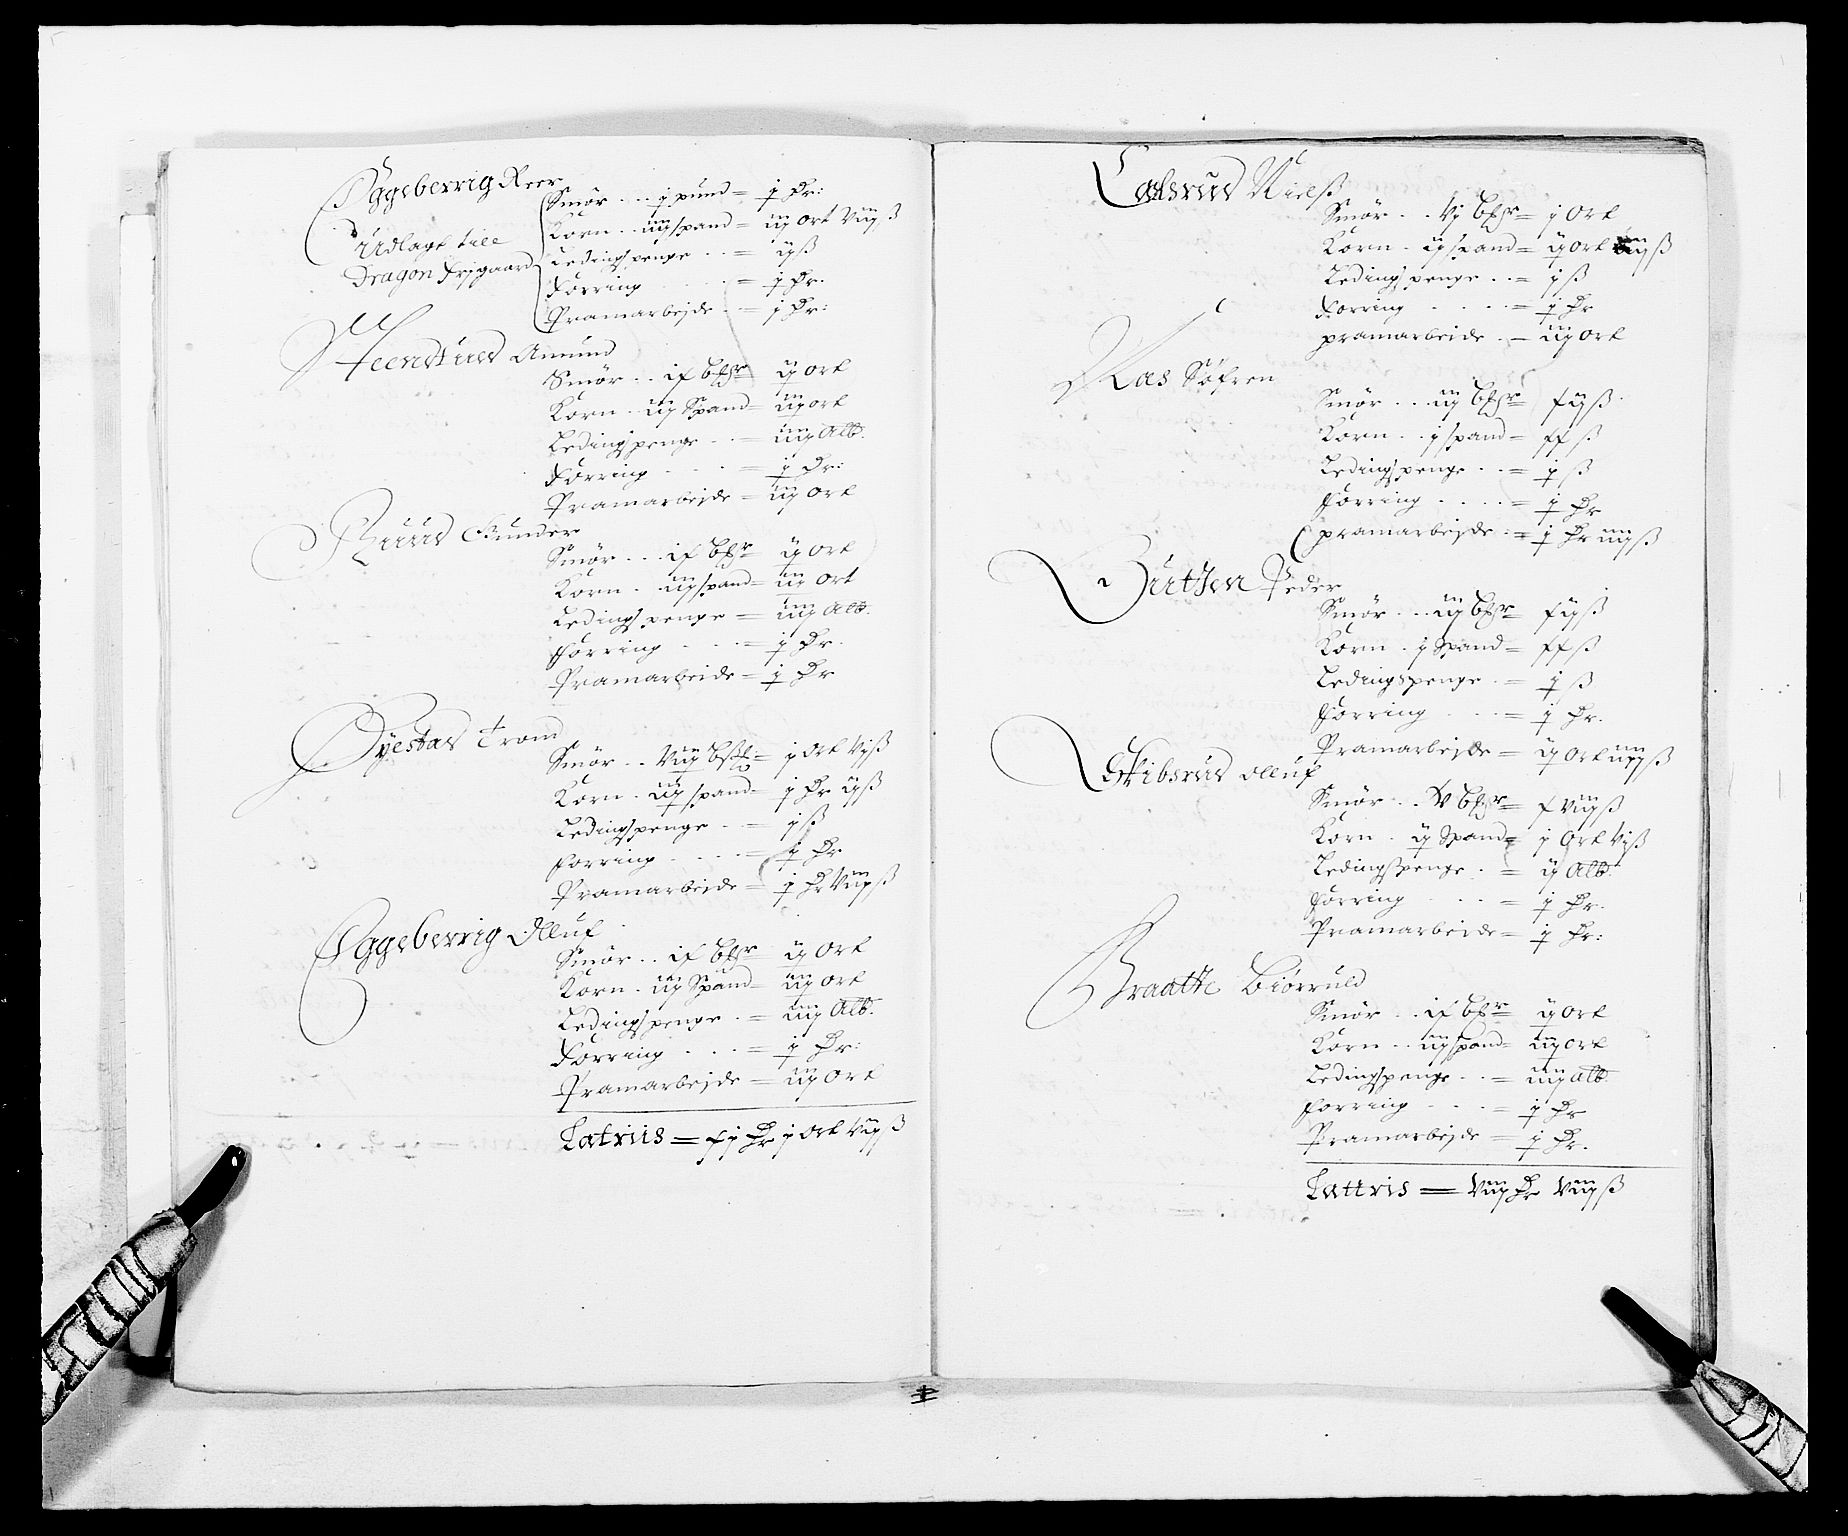 Eggeberrig Reer
Smør . . . j pund = j Dr:
Udlagt till
Dragon Frjgaard
Korn . . iiij spand = iij ort viij ß
Ledingspenge . . = ij ß
Forring . . . = j Dr.
Pramarbejde . = j Dr:
Amund
Smør . . if bßr ij ort
Korn . iij Spand = iij ort
Ledingspenge . . = iiij Alb.
Forring . . . = j Dr:
Pramarbejde = iij ort
Ruud Gunder
Smør . . . if bßr ij ort
Korn . iij spand = iij ort
Ledingspenge = iiij Alb.
Forring . . . = j Dr.
Pramarbeide = j Dr
Øyestad Trond
Smør . . viij = j ort vj ß
Korn . iij spand = j Dr ij ß
Ledingspenge . = j ß
Forring . . . = j Dr
Pramarbeide = j Dr viij ß
Eggeberrig Olluf
Smør . . if bßr ij ort
Korn . iij Spand = iij ort
Ledingspenge . = iiij Alb.
Forring . . . = j Dr:
Pramarbejde = iij ort
Latriis = fj Dr j ort viij ß
Calsrud Nielß
Smør . . vj bßr = j ort
Korn . ij spand = ij ort iiij ß
Ledingspenge . . = j ß
Forring . . . . = j Dr
pramarbeide . = iij ort
Aas Søfren
Smør . . . iij bßr = fij ß
Korn . . j spand = ff ß
Ledingspenge . . = j ß
Forring . . . . = j Dr
pramarbejde . = j Dr iiij ß
Peder
Smør . . . iij bßr = fij ß
Korn . j Spand = ff ß
Ledingspenge . = j ß
Forring . . . = j Dr.
Pramarbejde = ij ort iiij ß
Skibsrud olluf
Smør . . v bßr = f viij ß
Korn . ij Spand = j ort vj ß
Ledingspenge . = ij Alb.
Forring . . . = j Dr.
Pramarbeide = j Dr:
Braatte Biørruld
Smør . . if bßr ij ort
Korn . . iij spand = iij ort
Ledingspenge . . = iiij alb.
Forring . . . = j Dr
Pramarbejde = j Dr.
Lattris = viij Dr viij ß